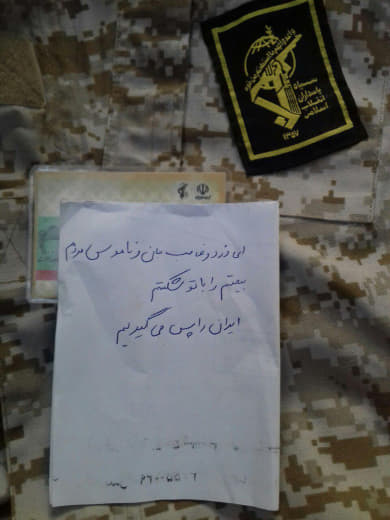 سپاه
پاسداران
انقلاب
اسلامی
۱۳۵۷
ای دزد و غاصب مان و ناموس مردم
بیعتم را با تو شکستم
ایران را پس می گیریم